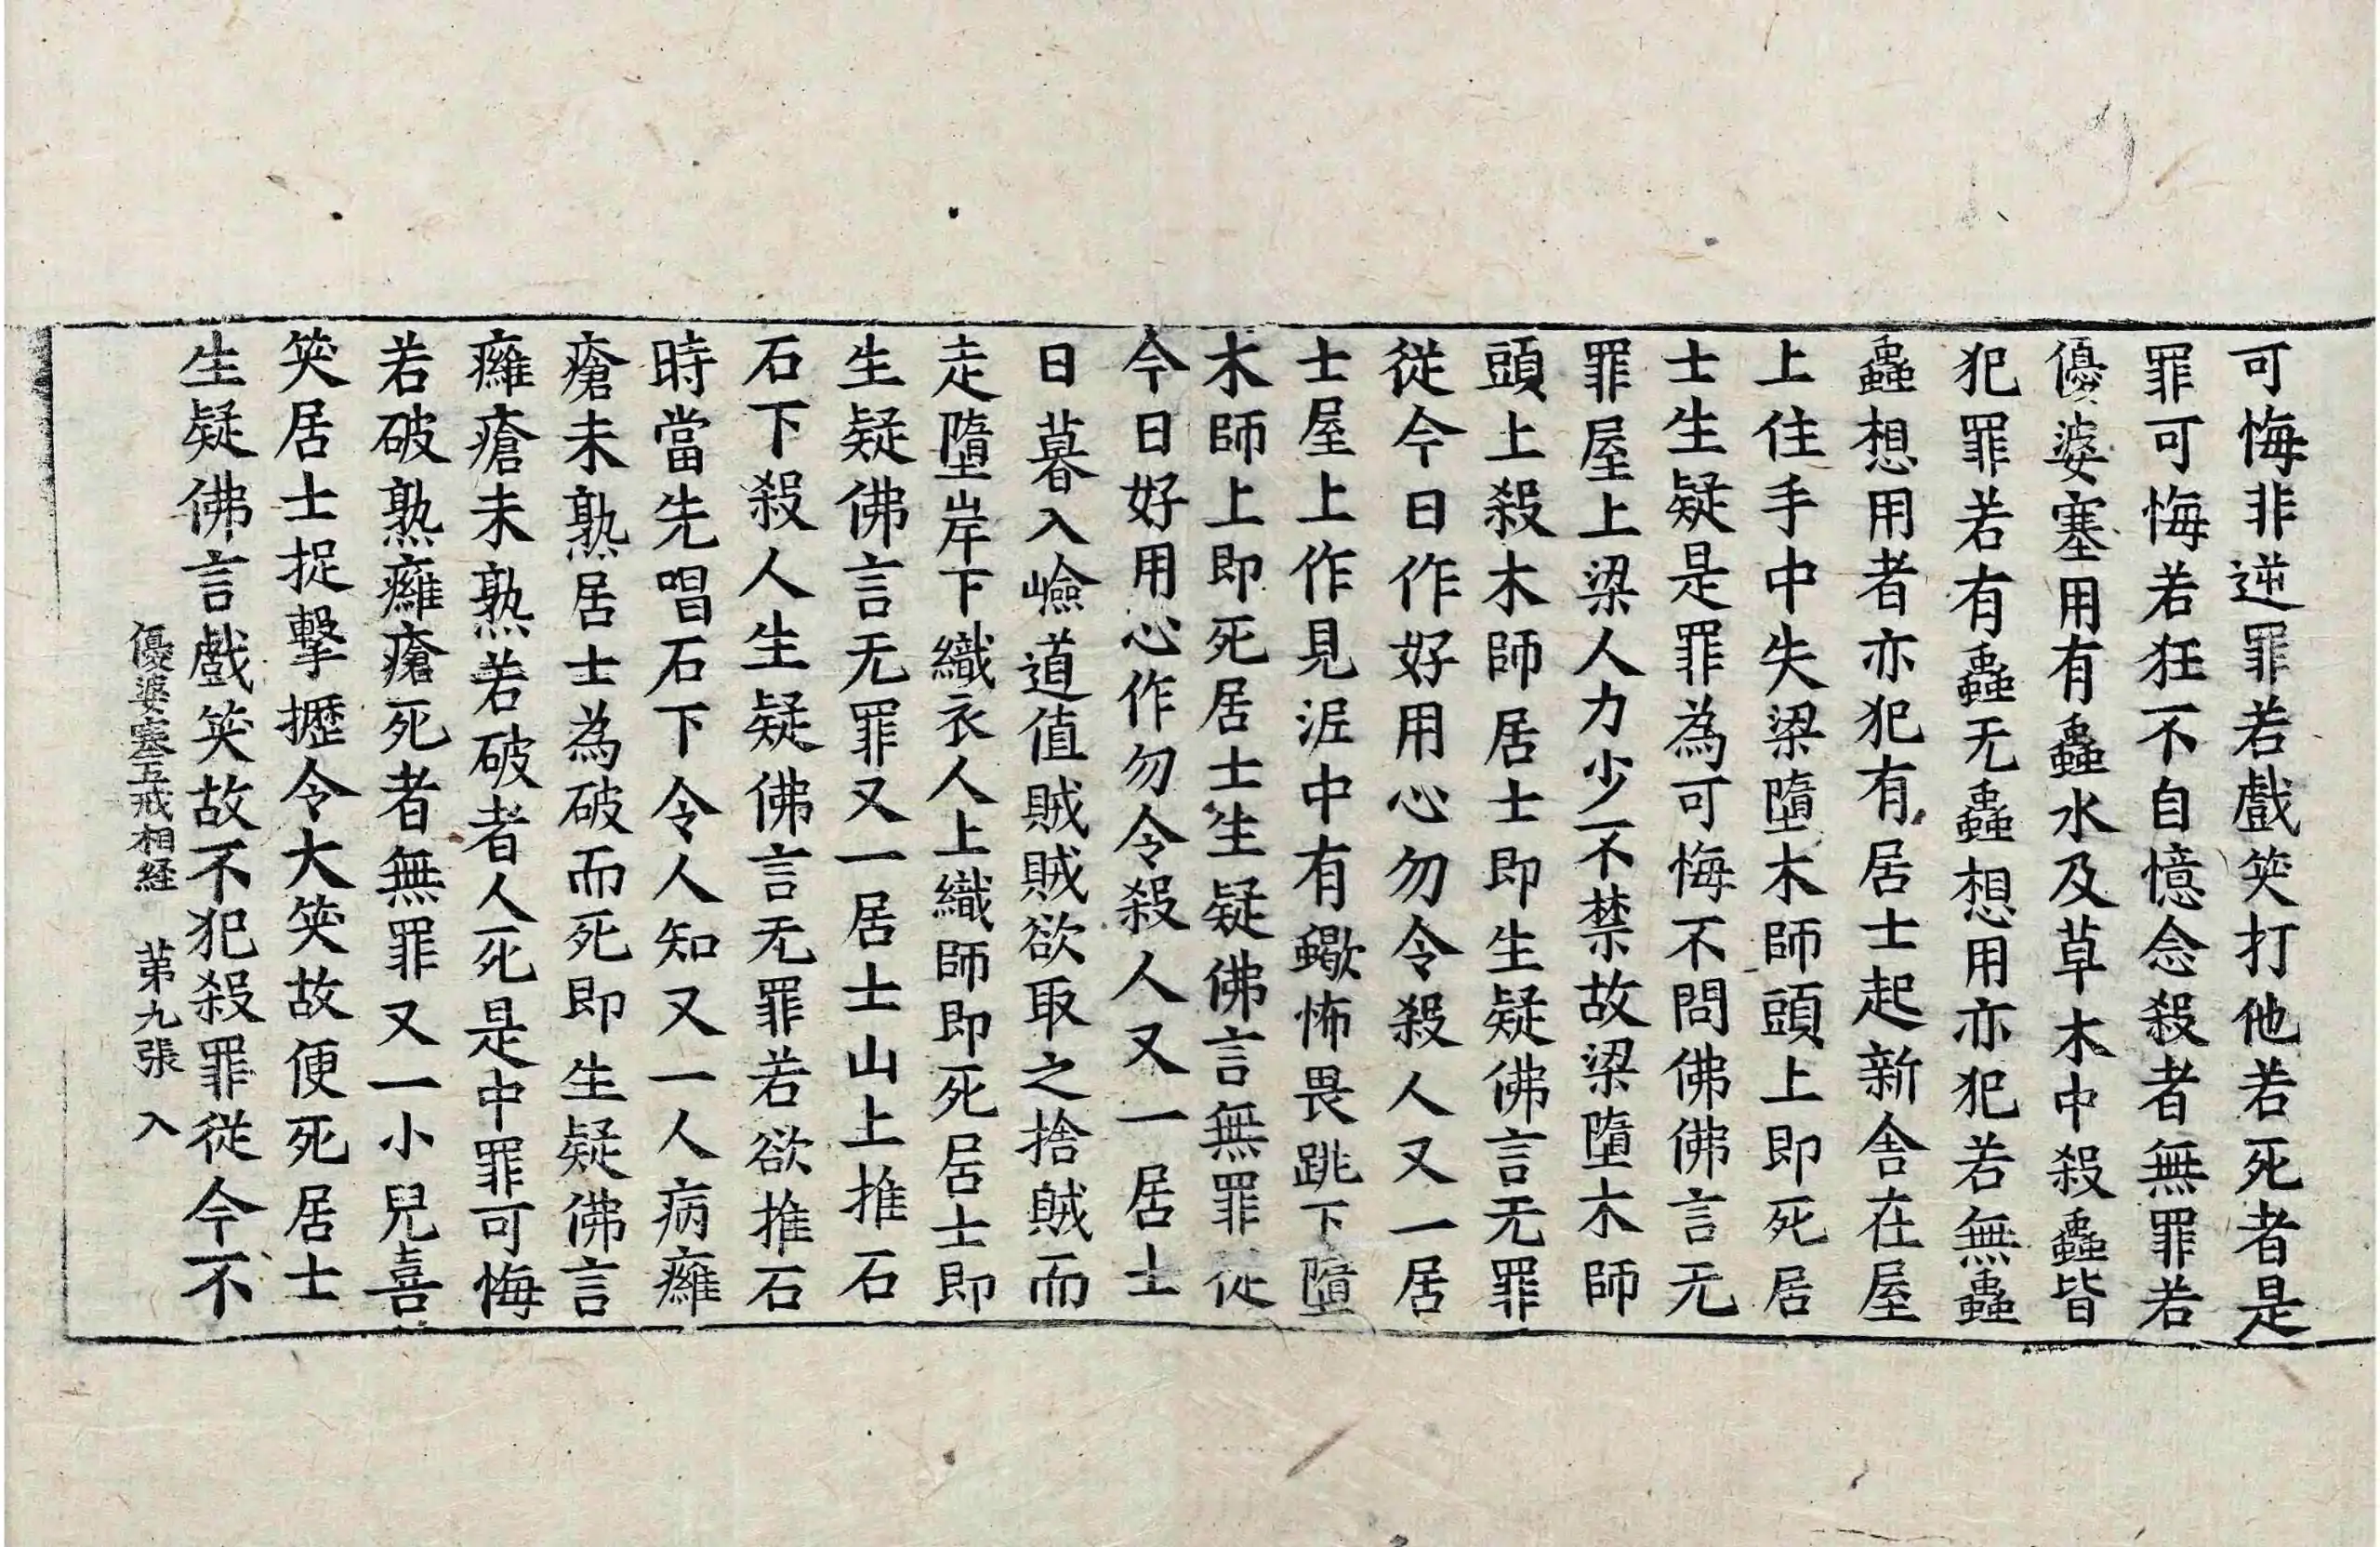 可悔非逆罪若戲笑打他若死者是
罪可悔若狂不自憶念殺者無罪若
優婆塞用有蟲水及草木中殺蟲皆
犯罪若有蟲无蟲想用亦犯若無蟲
蟲想用者亦犯有居士起新舍在屋
上住手中失梁墮木師頭上即死居
士生疑是罪為可悔不問佛佛言无
罪屋上梁人力少不禁故梁墮木師
頭上殺木師居士即生疑佛言无罪
從今日作好用心勿令殺人又一居
士屋上作見泥中有蠍怖畏跳下墮
木師上即死居士生疑佛言無罪從
今日好用心作勿令殺人又一居士
日暮入嶮道值賊賊欲取之捨賊而
走墮岸下織衣人上織師即死居士即
生疑佛言无罪又一居士山上推石
石下殺人生疑佛言无罪若欲推石
時當先唱石下令人知又一人病癰
瘡未熟居士為破而死即生疑佛言
癰瘡未熟若破者人死是中罪可悔
若破熟癰瘡死者無罪又一小兒喜
笑居士捉擊攊令大笑故便死居士
生疑佛言戲笑故不犯殺罪從今不
優婆塞五戒相経　苐九張　入